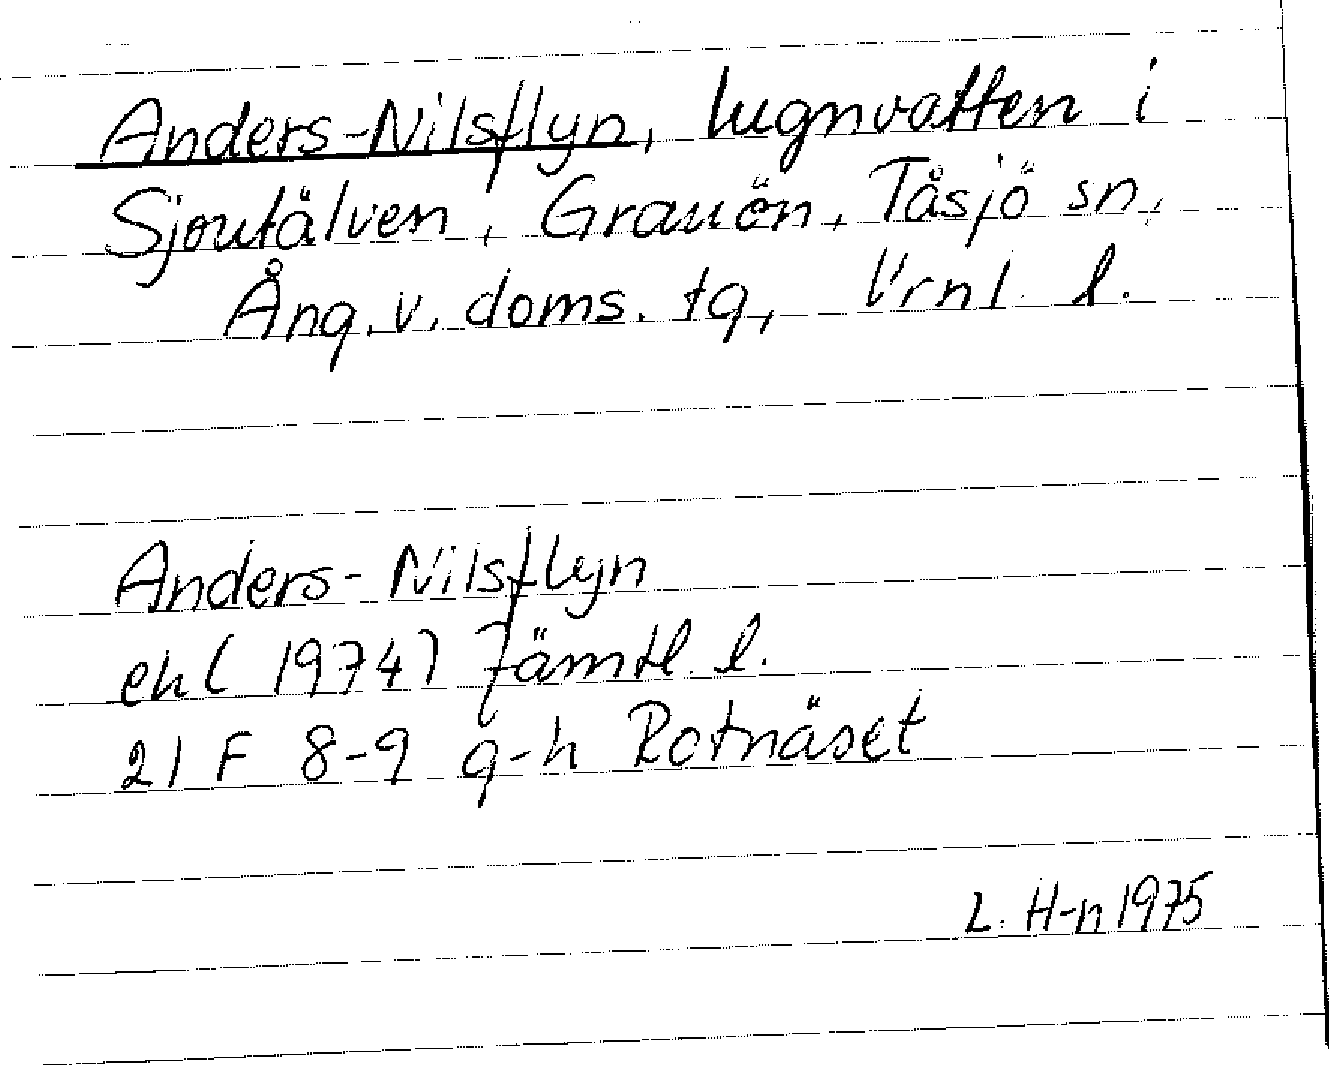 Anders-Nilsflyn, lugnvatten i
Sjoutälven, Grauön, Tåsjö sn,
Ång. v. doms. tg, Vrnl. l.
Anders-Nilsflyn
ekl (1974) Jämtl. l.
21 F 8-9 g-h Rotnäset
L. H-n 1975